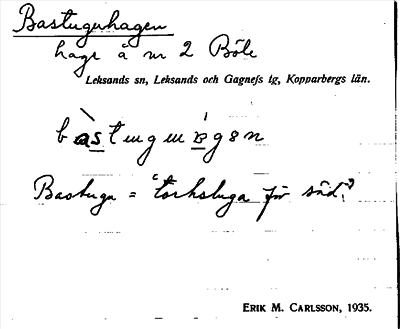 Bastuguhagen
hage å nr 2 Böle
Leksands sn, Leksands och Gagnefs tg, Kopparbergs län.
Bastuga = "torkstuga för säd."
ERIK M. CARLSSON, 1935.